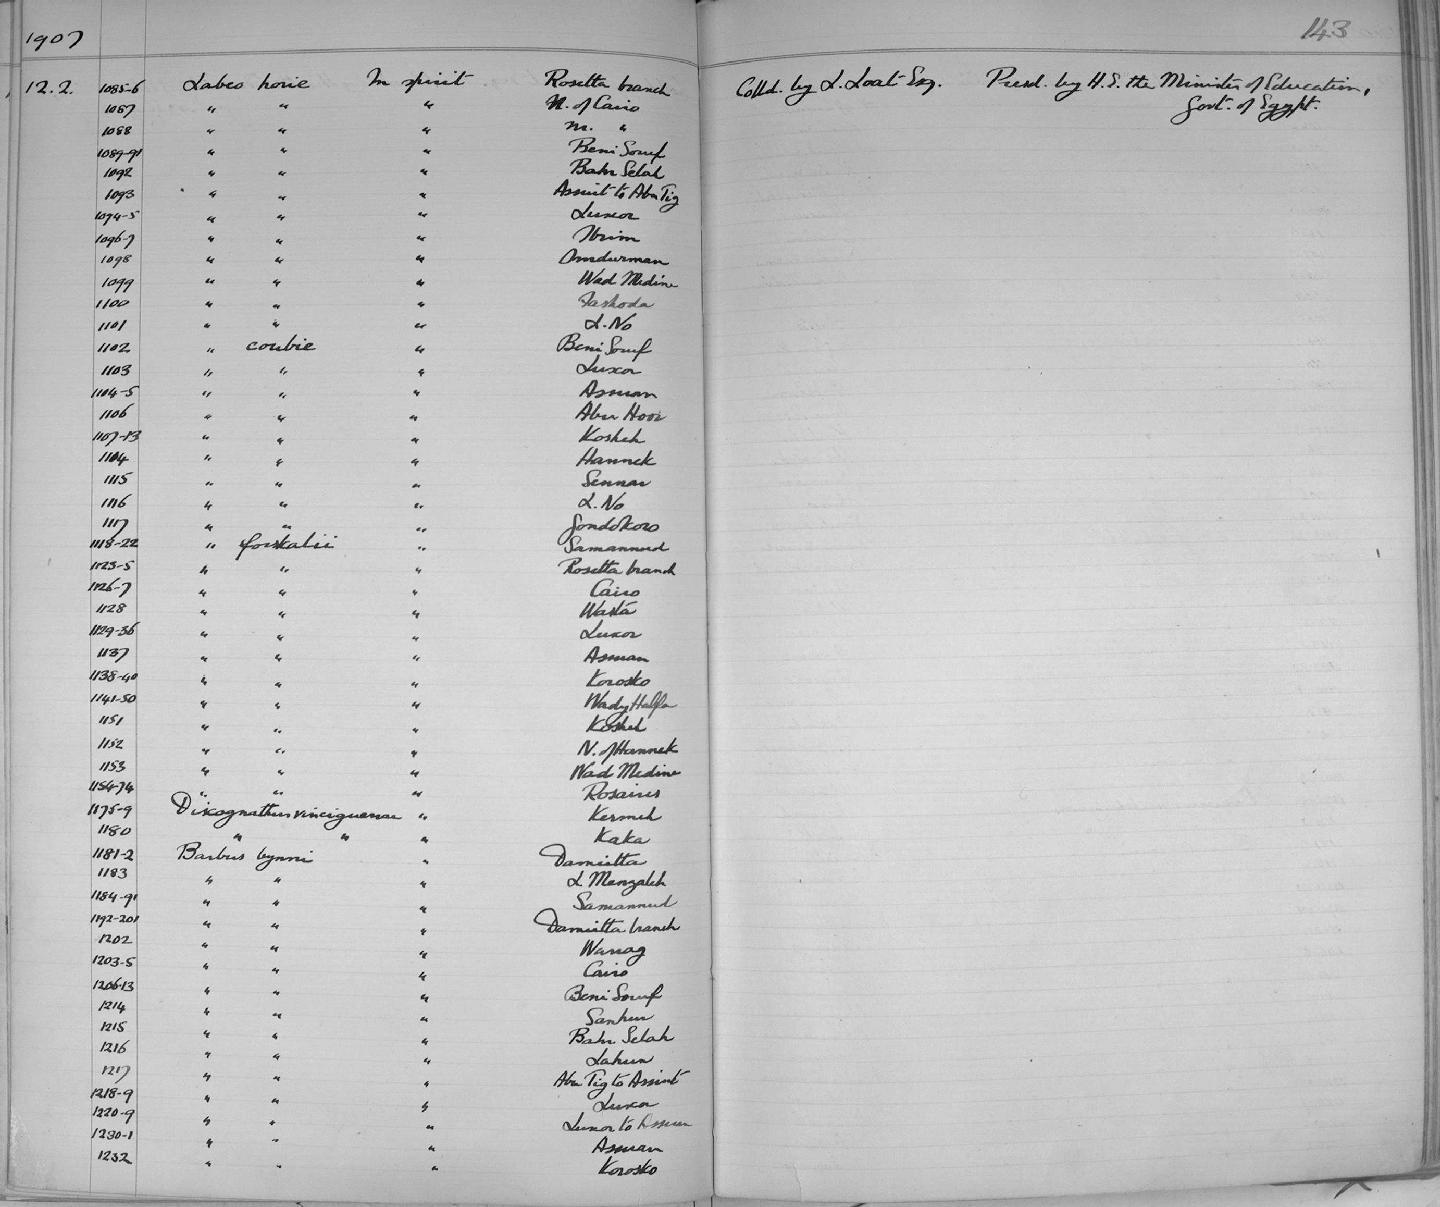 1907
143
12.2. 1085-6 Labeo horie In spirit Rosetta branch Colld. by L. Loat Esq. Presd. by H.E. the Minister of Education,
Govt. of Egypt.
1087 " " " N. of Cairo
1088 " " " N. "
1089-91 " " " Beni Souef
1092 " " " Bahr Selah
1093 " " " Assiut to Abu Tig
1094-5 " " " Luxor
1096-7 " " " Ibrim
1098 " " " Omdurman
1099 " " " Wad Medine
1100 " " " Fashoda
1101 " " " L. No
1102 " coubie " Beni Souef
1103 " " " Luxor
1104-5 " " " Assuan
1106 " " " Abu Hoor
1107-13 " " " Kosheh
1114 " " " Hannek
1115 " " " Sennar
1116 " " " L. No
1117 " " " Gondokoro
1118-22 " forskalii " Samannud
1123-5 " " " Rosetta branch
1126-7 " " " Cairo
1128 " " " Wasta
1129-36 " " " Luxor
1137 " " " Assuan
1138-40 " " " Korosko
1141-50 " " " Wady Halfa
1151 " " " Kosheh
1152 " " " N. of Hannek
1153 " " " Wad Medine
1154-74 " " " Rosaires
1175-9 Discognathus vinciguerrae " Kermeh
1180 " " " Kaka
1181-2 Barbus bynni " Damietta
1183 " " " L Menzaleh
1184-91 " " " Samannud
1192-201 " " " Damietta branch
1202 " " " Warrag
1203-5 " " " Cairo
1206-13 " " " Beni Souef
1214 " " " Sanhur
1215 " " " Bahr Selah
1216 " " " Lahun
1217 " " " Abu Tig to Assiut
1218-9 " " " Luxor
1220-9 " " " Luxor to Assuan
1230-1 " " " Assuan
1232 " " " Korosko